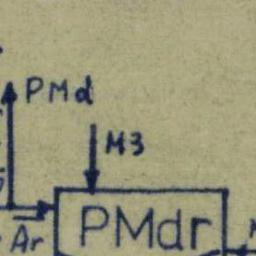 PMd
M3
Ar
PMdr